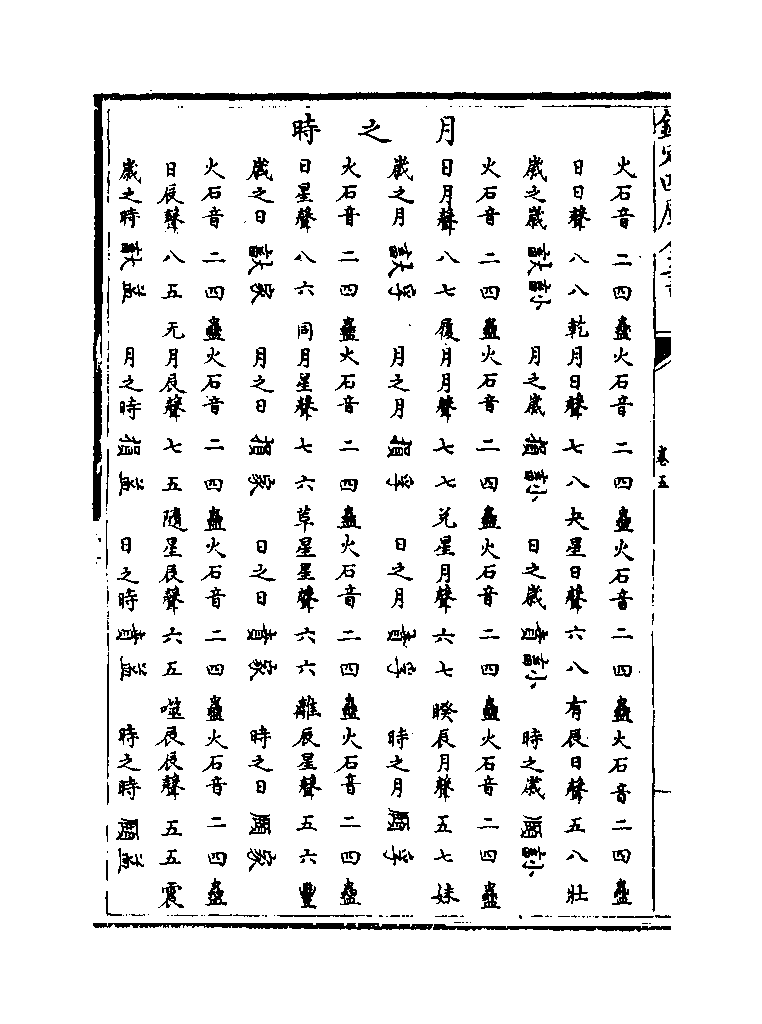 欽定四庫全書
卷五
月之時
火石音二四蠱火石音二四蠱火石音二四蠱火石音二四蠱
日日聲八八乾月日聲七八夬星日聲六八有辰日聲五八壯
歲之歲大畜小畜 月之歲損小畜 日之歲賁小畜 時之歲頤小畜
火石音二四蠱火石音二四蠱火石音二四蠱火石音二四蠱
日月聲八七履月月聲七七兌星月聲六七暌辰月聲五七妹
歲之月大畜孚 月之月損孚 日之月賁孚 時之月頤孚
火石音二四蠱火石音二四蠱火石音二四蠱火石音二四蠱
日星聲八六同月星聲七六革星星聲六六離辰星聲五六豐
歲之日大畜家 月之日損家 日之日賁家 時之日頤家
火石音二四蠱火石音二四蠱火石音二四蠱火石音二四蠱
日辰聲八五无月辰聲七五隨星辰聲六五噬辰辰聲五五震
歲之時大畜益 月之時損益 日之時賁益 時之時頤益